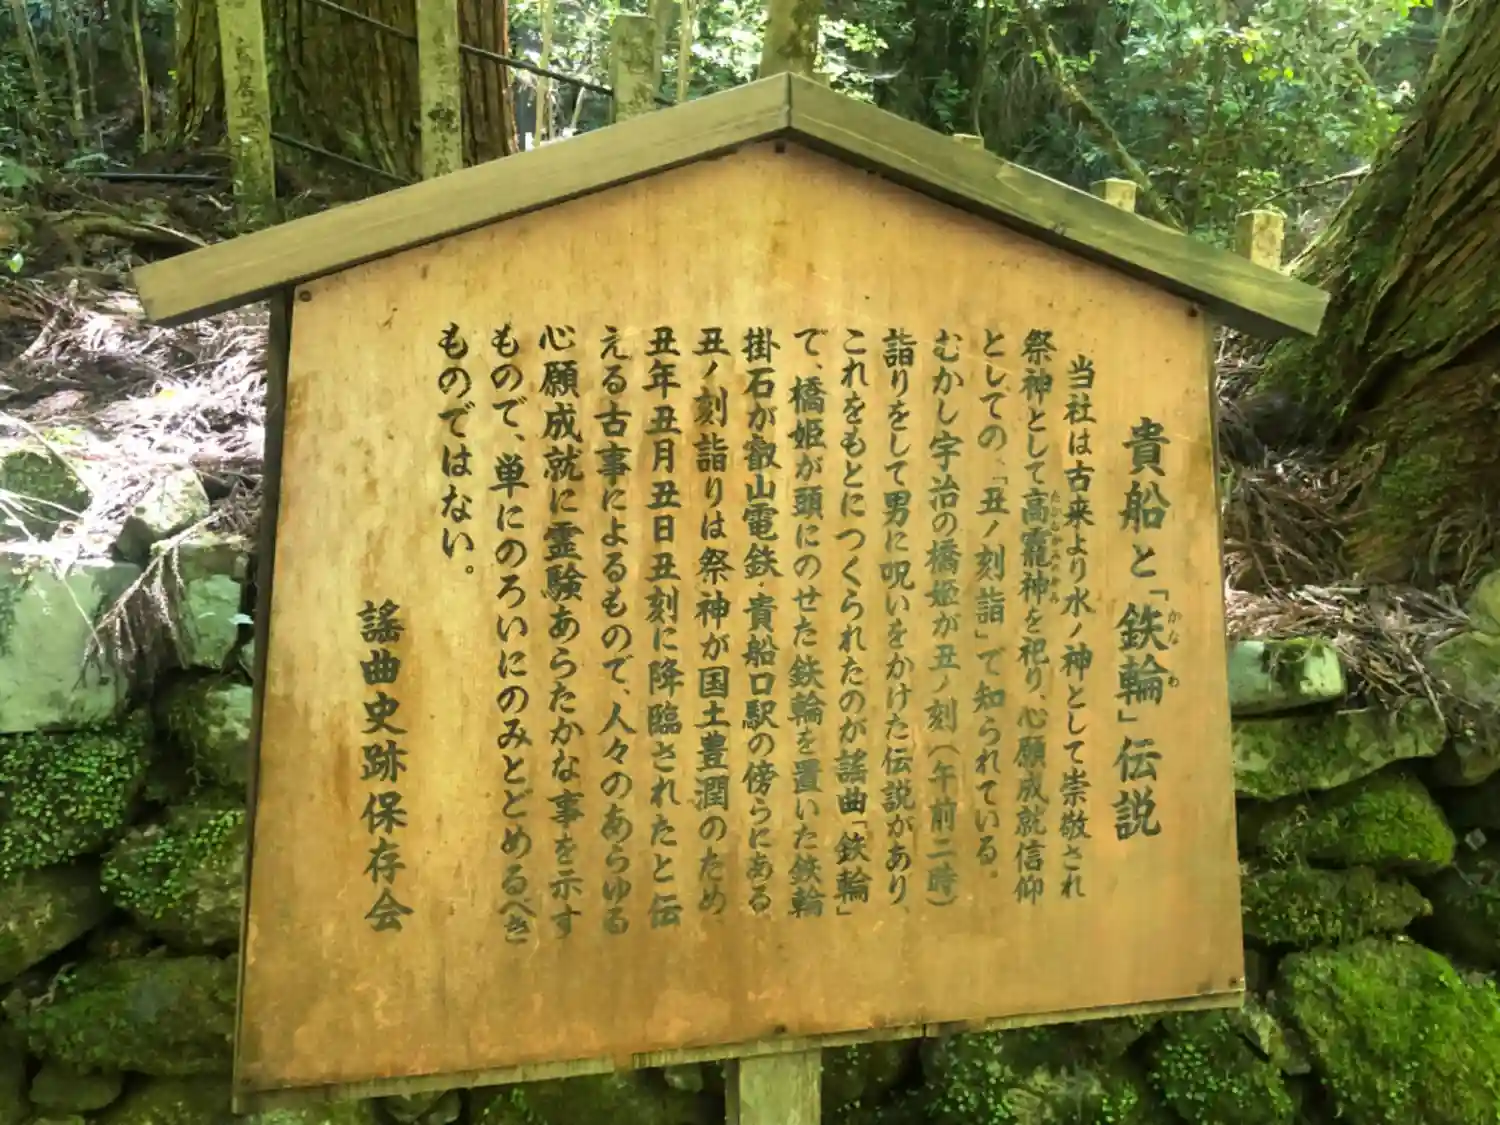 貴船と「鉄輪」伝説
かなわ
当社は古来より水ノ神として崇敬され
祭神として高龗神を祀り、心願成就信仰
たかおかみのかみ
としての、「丑ノ刻詣」で知られている。
むかし宇治の橋姫が丑ノ刻(午前二時)
詣りをして男に呪いをかけた伝説があり、
これをもとにつくられたのが謡曲「鉄輪」
で、橋姫が頭にのせた鉄輪を置いた鉄輪
掛石が叡山電鉄・貴船口駅の傍らにある
丑ノ刻詣りは祭神が国土豊潤のため
丑年丑月丑日丑刻に降臨されたと伝
える古事によるもので、人々のあらゆる
心願成就に霊験あらたかな事を示す
もので、単にのろいにのみとどめるべき
ものではない。
謡曲史跡保存会